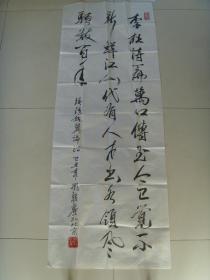 李杜詩篇萬口傳至今已覺不
新鮮江山代有人才出各領風
騷數百年
趙翼詩